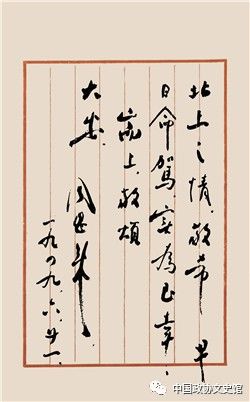 北上之情，敬希早
日命駕，实為至幸。
耑上，敬頌
大安
周恩来
一九四九、六、廿一、
中国政协文史馆